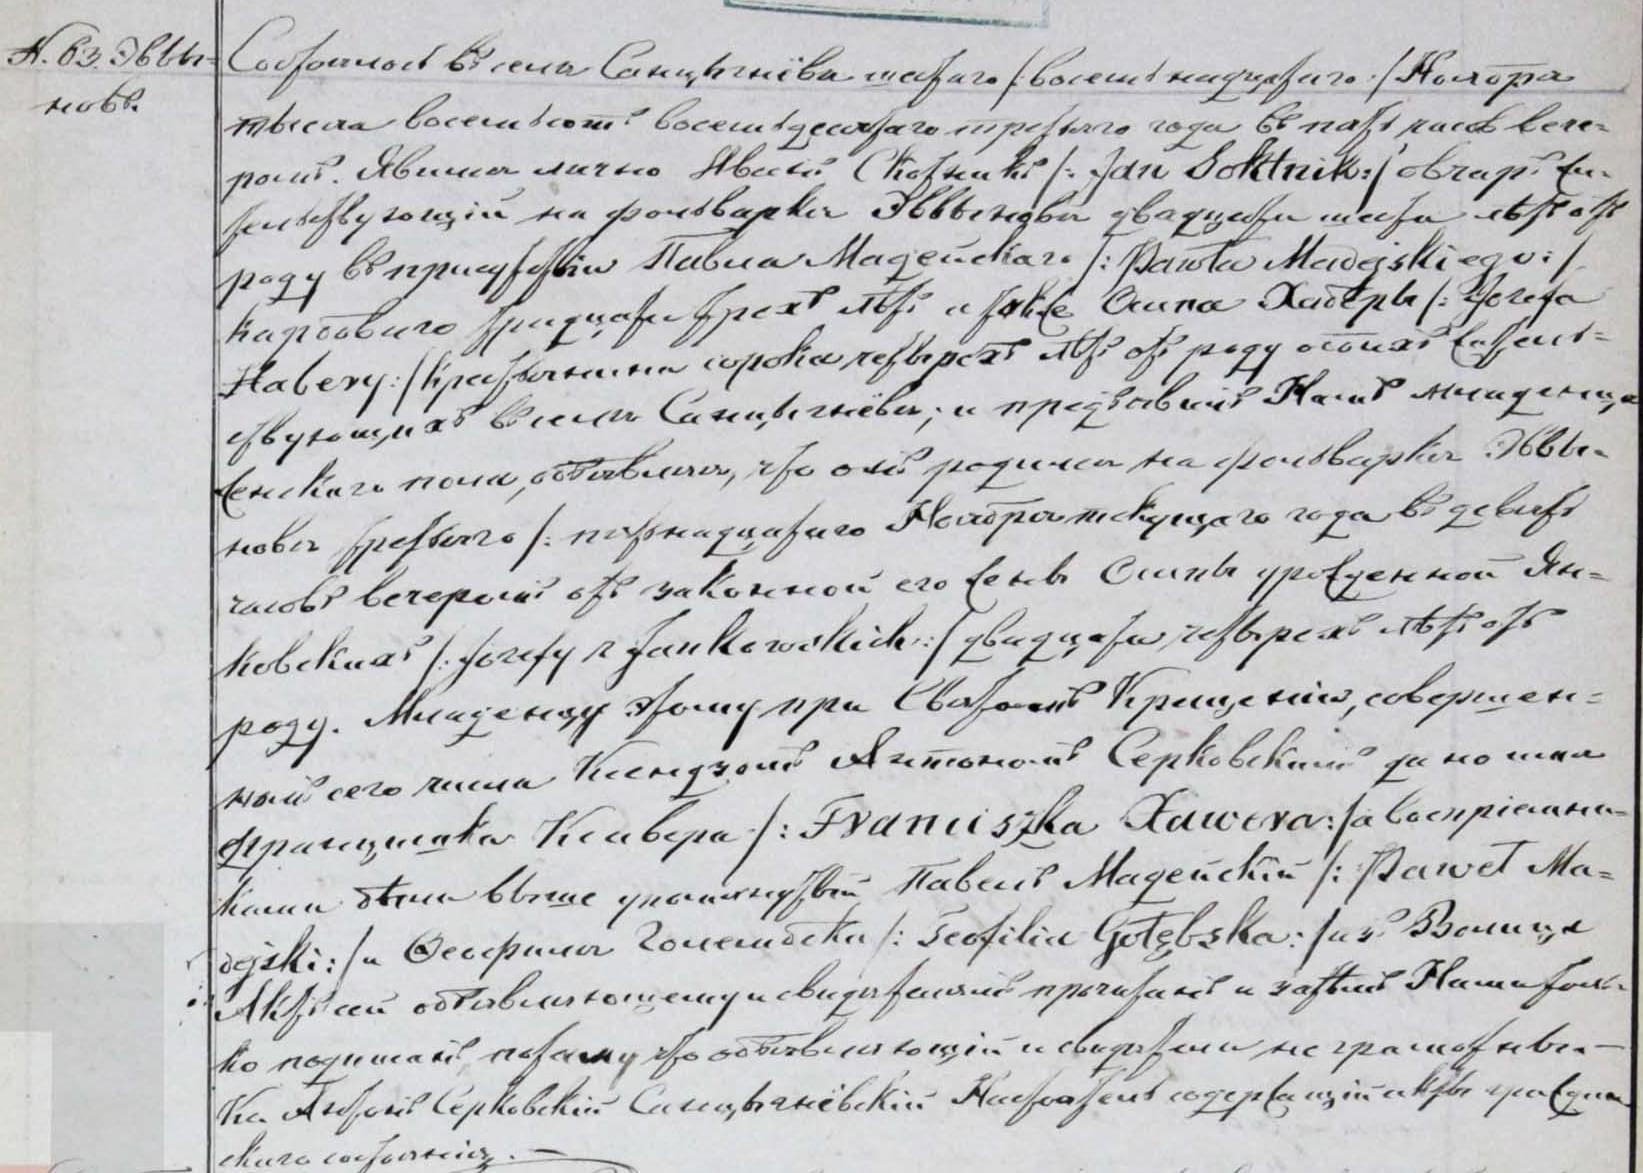 N. 63. Эввы-
новъ.
Состоялось въ селѣ Санцыгнёвѣ шестаго /: восемьнадцатаго :/ Ноября
тысяча восемьсотъ восемьдесятаго третьяго года въ пять часовъ вече-
ромъ. Явился лично Иванъ Скотникъ /: Jan Skotnik :/ овчаръ жи-
тельствующій на фольваркѣ Эввыновѣ двадцати шести лѣтъ отъ
роду въ присутствіи Павла Мадейскаго /: Pawła Madejskiego :/
карбоваго тридцати трехъ лѣтъ и также Осипа Хаберы /: Józefa
Habery :/ крестьянина сорока четырехъ лѣтъ отъ роду обоихъ жительс-
твующихъ въ селѣ Санцыгнёвѣ; и предъявилъ Намъ младенца
женскаго пола, объявляя, что онъ родился на фольваркѣ Эввы-
новѣ третьяго /: пятнадцатаго Ноября текущаго года въ девять
часовъ вечеромъ отъ законной его жены Осипы урожденной Ян-
ковскихъ /: Józefy z Jankowskich :/ двадцати четырехъ лѣтъ отъ
роду. Младенцу этому при Святомъ Крещеніи, совершен-
номъ сего числа Ксендзомъ Антономъ Серковскимъ дано имя
Францишка Ксавера /: Franciszka Xawera :/ а воспріемни-
ками были выше упомянутый Павелъ Мадейскій /: Paweł Ma-
dejski :/ и Ѳеофиля Голембска /: Teofilia Gołębska :/ изъ Волицы
Актъ сей объявляющему и свидѣтелямъ прочитанъ и затѣмъ Нами толь-
ко подписанъ, потому что объявляющій и свидѣтели неграмотны. —
Кс Антонъ Серковскій Санцыгнёвскій Настоятель содержащій акты граждан
скаго состоянія. —